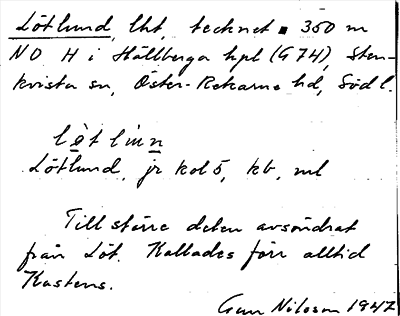 Lötlund, lht, tecknet ▪ 350 m
NO H i Hällberga hpl (G74), Sten-
kvista sn, Öster-Rekarne hd, Södl.
lö̀tlun
Lötlund, jr kol 5, kb, ml
Till större delen avsöndrat
från Löt. Kallades förr alltid
Kastens.
Gun Nilsson 1947